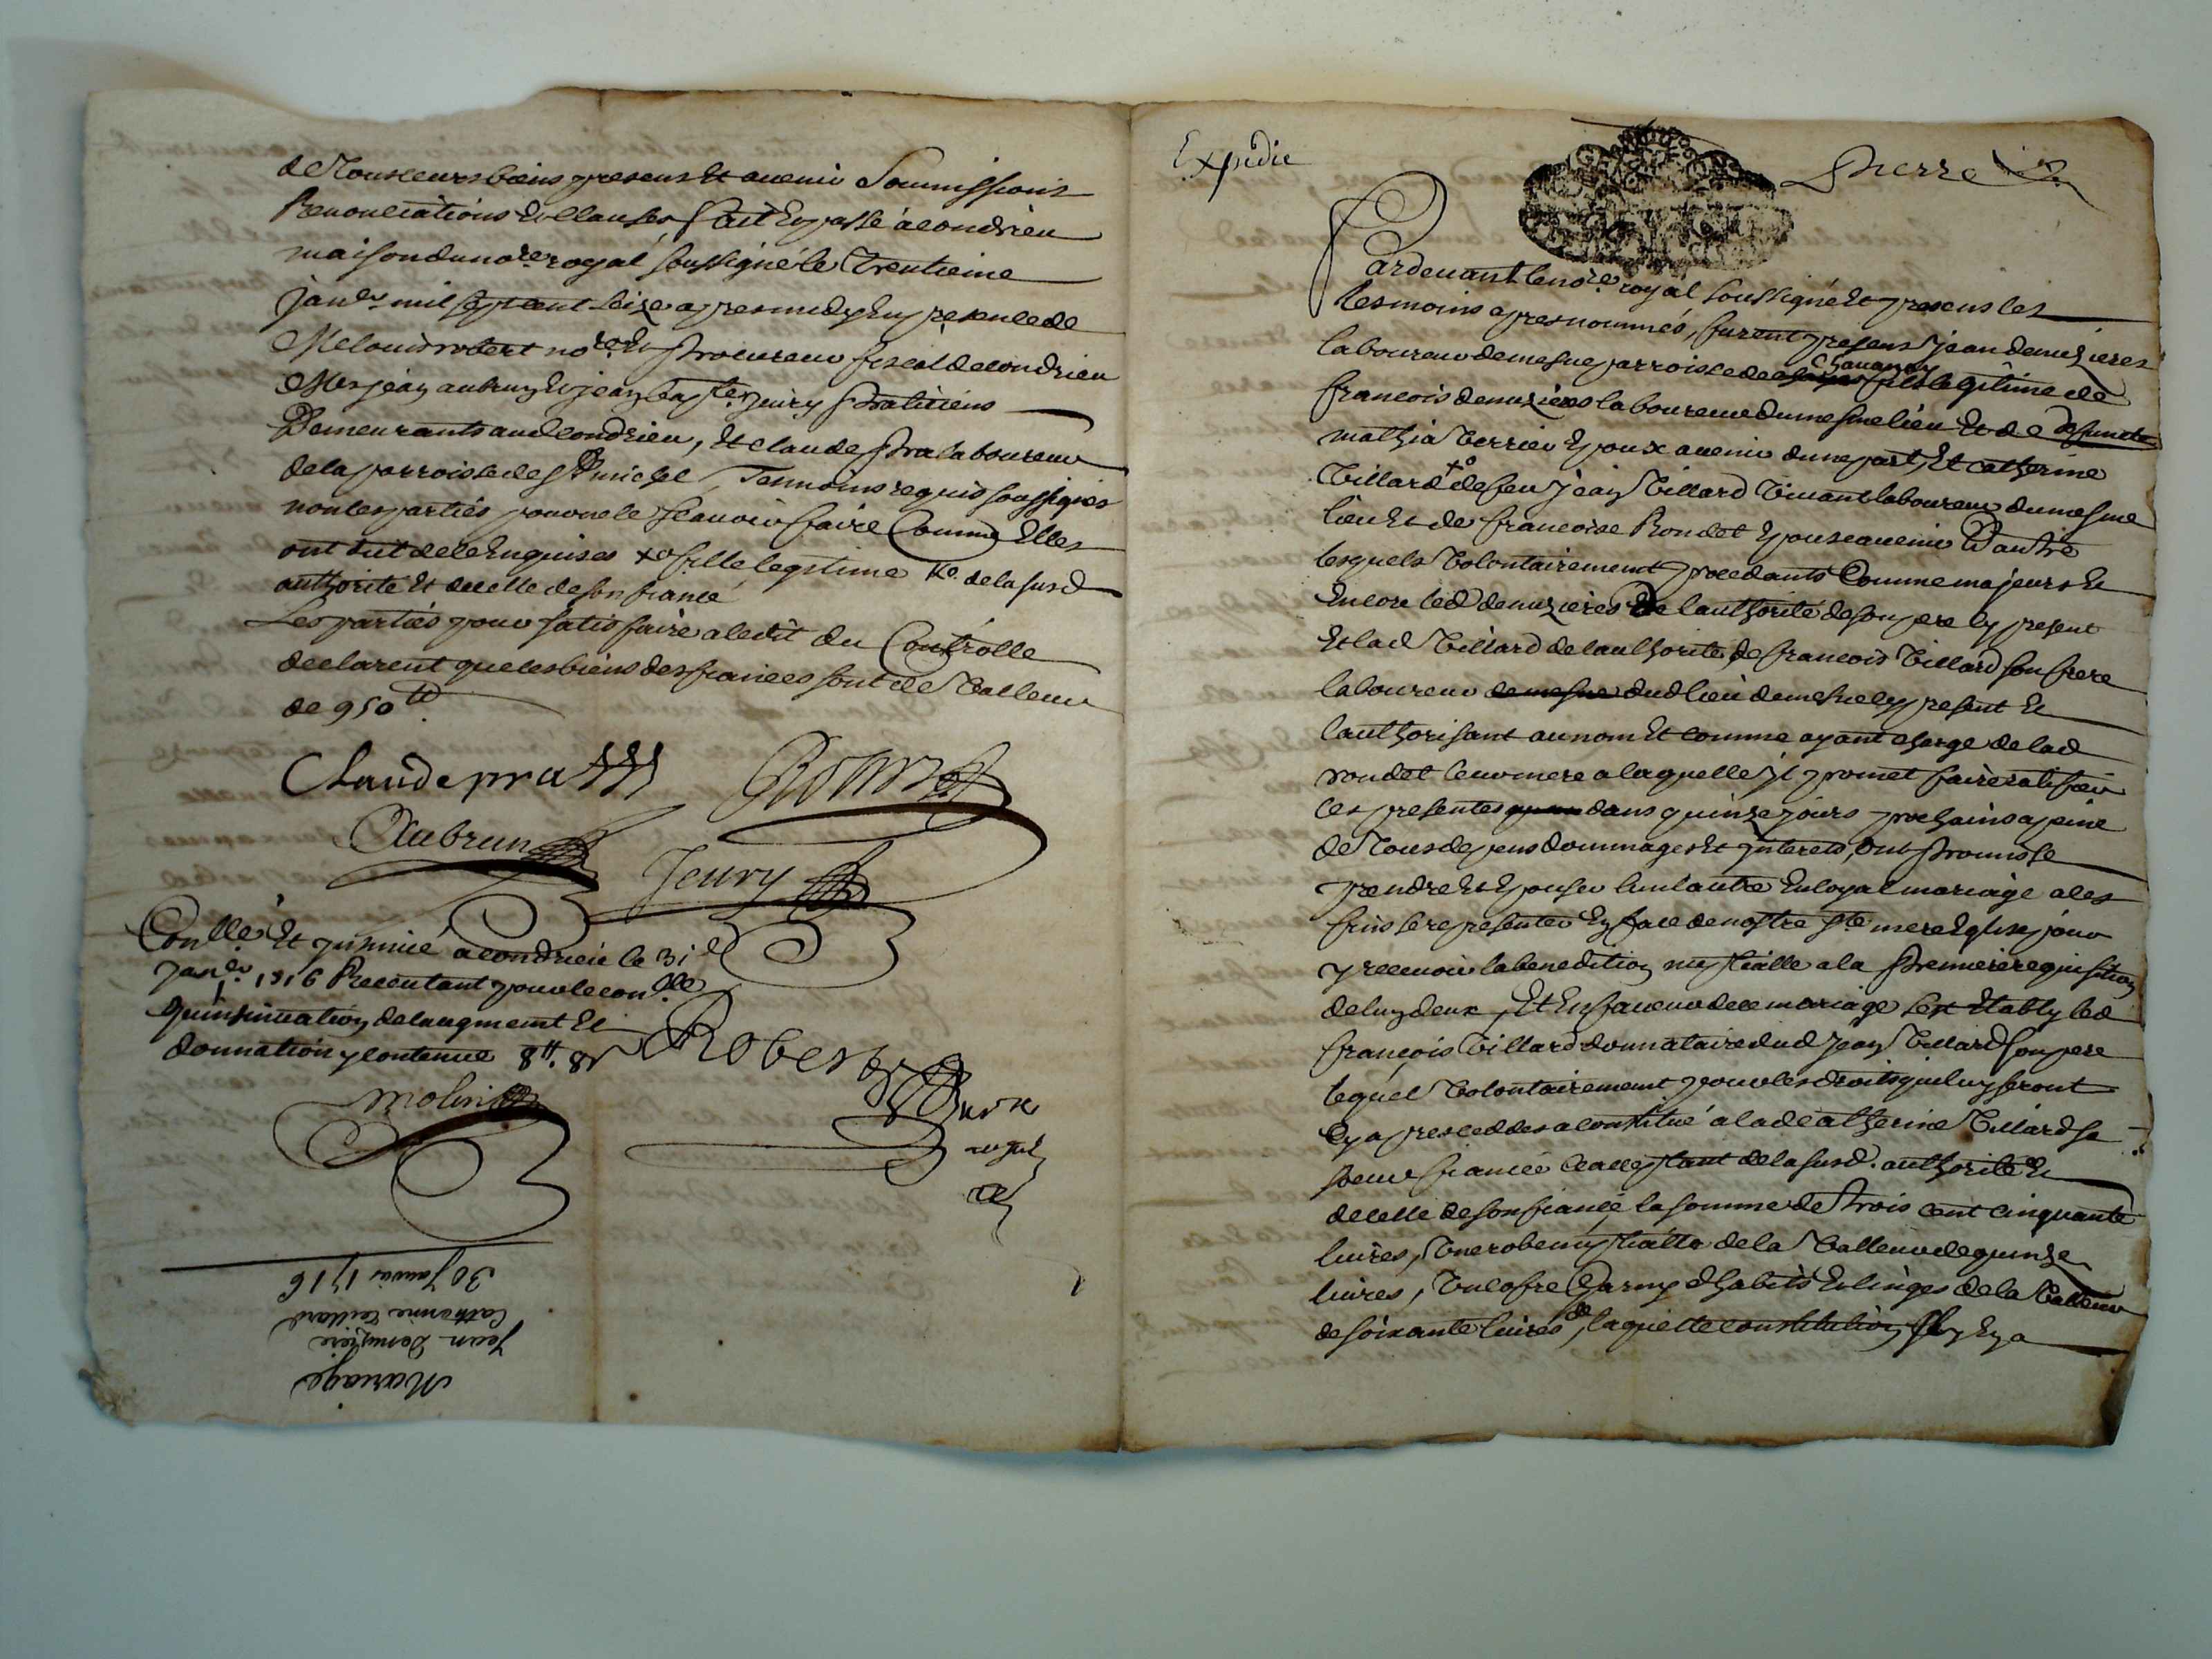 de Tous leurs biens presens Et avenir Soumissions
Renonciations Et Clauses, fait Et passé a condrieu
maison du no.re royal soussigné le Trentieme
jan.er mil sept cent seize apres midy En presence de
Me Louis robert no.re Et Procureur fiscal de condrieu
Mes jean aubrun Et jean bap.te jeury Praticiens
Demeurants aud condrieu, Et claude Pra laboureur
de la parroisse de St michel, Tesmoins requis soussignés
non les parties pour ne le sçavoir faire Comme Elles
ont dit de ce Enquises xo fille legitime xo de la susd
authorité Et de celle de son fiancé
Les parties pour satisfaire a ledit du Controlle
declarent que les biens des fiancés sont de Valleur
de 950 tt
Claude pra
Aubrun
Jeury
Con.llé Et insinué a condrieu le 31e
jan.er 1716 Receu tant pour le con.lle
qu insinuation de laugment Et
donnation y contenue 8tt. 8s
molin
Robert
no.re
royal
30 Janvier 1716
Catherine Tillard
Jean Demuziere
Mariage
Expedie
Pierre
Pardevant le no.re royal soussigné Et presens les
tesmoins apres nommés, furent presens jean demuzieres
laboureur de mesme parroisse de Chavanay fils legitime de
francois demuzieres laboureur du mesme lieu Et de defuncte
mathia Verrier Epoux avenir dune part, Et catherine
Tillard xo de feu jean Tillard Vivant laboureur du mesme
lieu Et de francoise Rondet Epouse avenir D'autre
lesquels Volontairement procedants Comme majeurs Et
Encore led demuzieres De lauthorité de son pere Cy present
Et lad Tillard de lauthorité de francois Tillard son frere
laboureur de mesme dud lieu de mesme cy present Et
lauthorisant au nom Et comme ayant charge de lad
rondet leur mere a laquelle il promet faire ratifier
ces presentes dans quinze jours prochains a peine
de Tous depens dommages Et interets, ont Promis se
prendre Et Epouser lun lautre En loyal mariage a ces
fins se representer En face de nostre Ste mere Eglise pour
y recevoir la benediction nuptialle a la Premiere requisition
de luy deux, Et En faveur de ce mariage sest Etably led
françois Tillard donnataire dud jean Tillard son pere
lequel Volontairement pour les droits qui luy seront
Cy apres cedder a constitué a lad catherine Tillard sa
soeur fiancée Acceptant de la susd. authorité Et
de celle de son fiancé, la somme de Trois cent cinquante
livres, Une robe nuptialle de la Valleur de quinze
livres, Un cofre Garny d'habits Et linges de la Valleur
de soixante livres, laquelle constitution